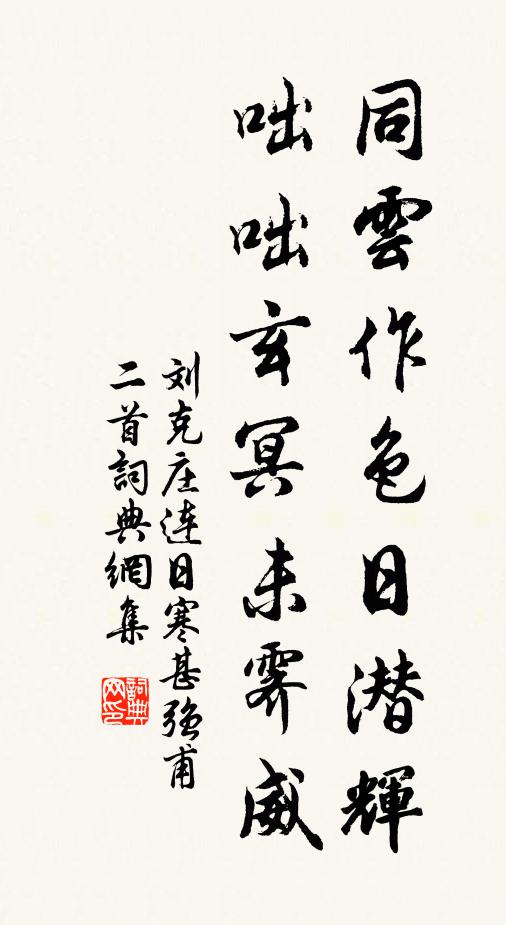 同雲作色日潜輝
咄咄玄冥未霽威
刘克庄連日寒甚強甫
二首詞典網集
詞典网印